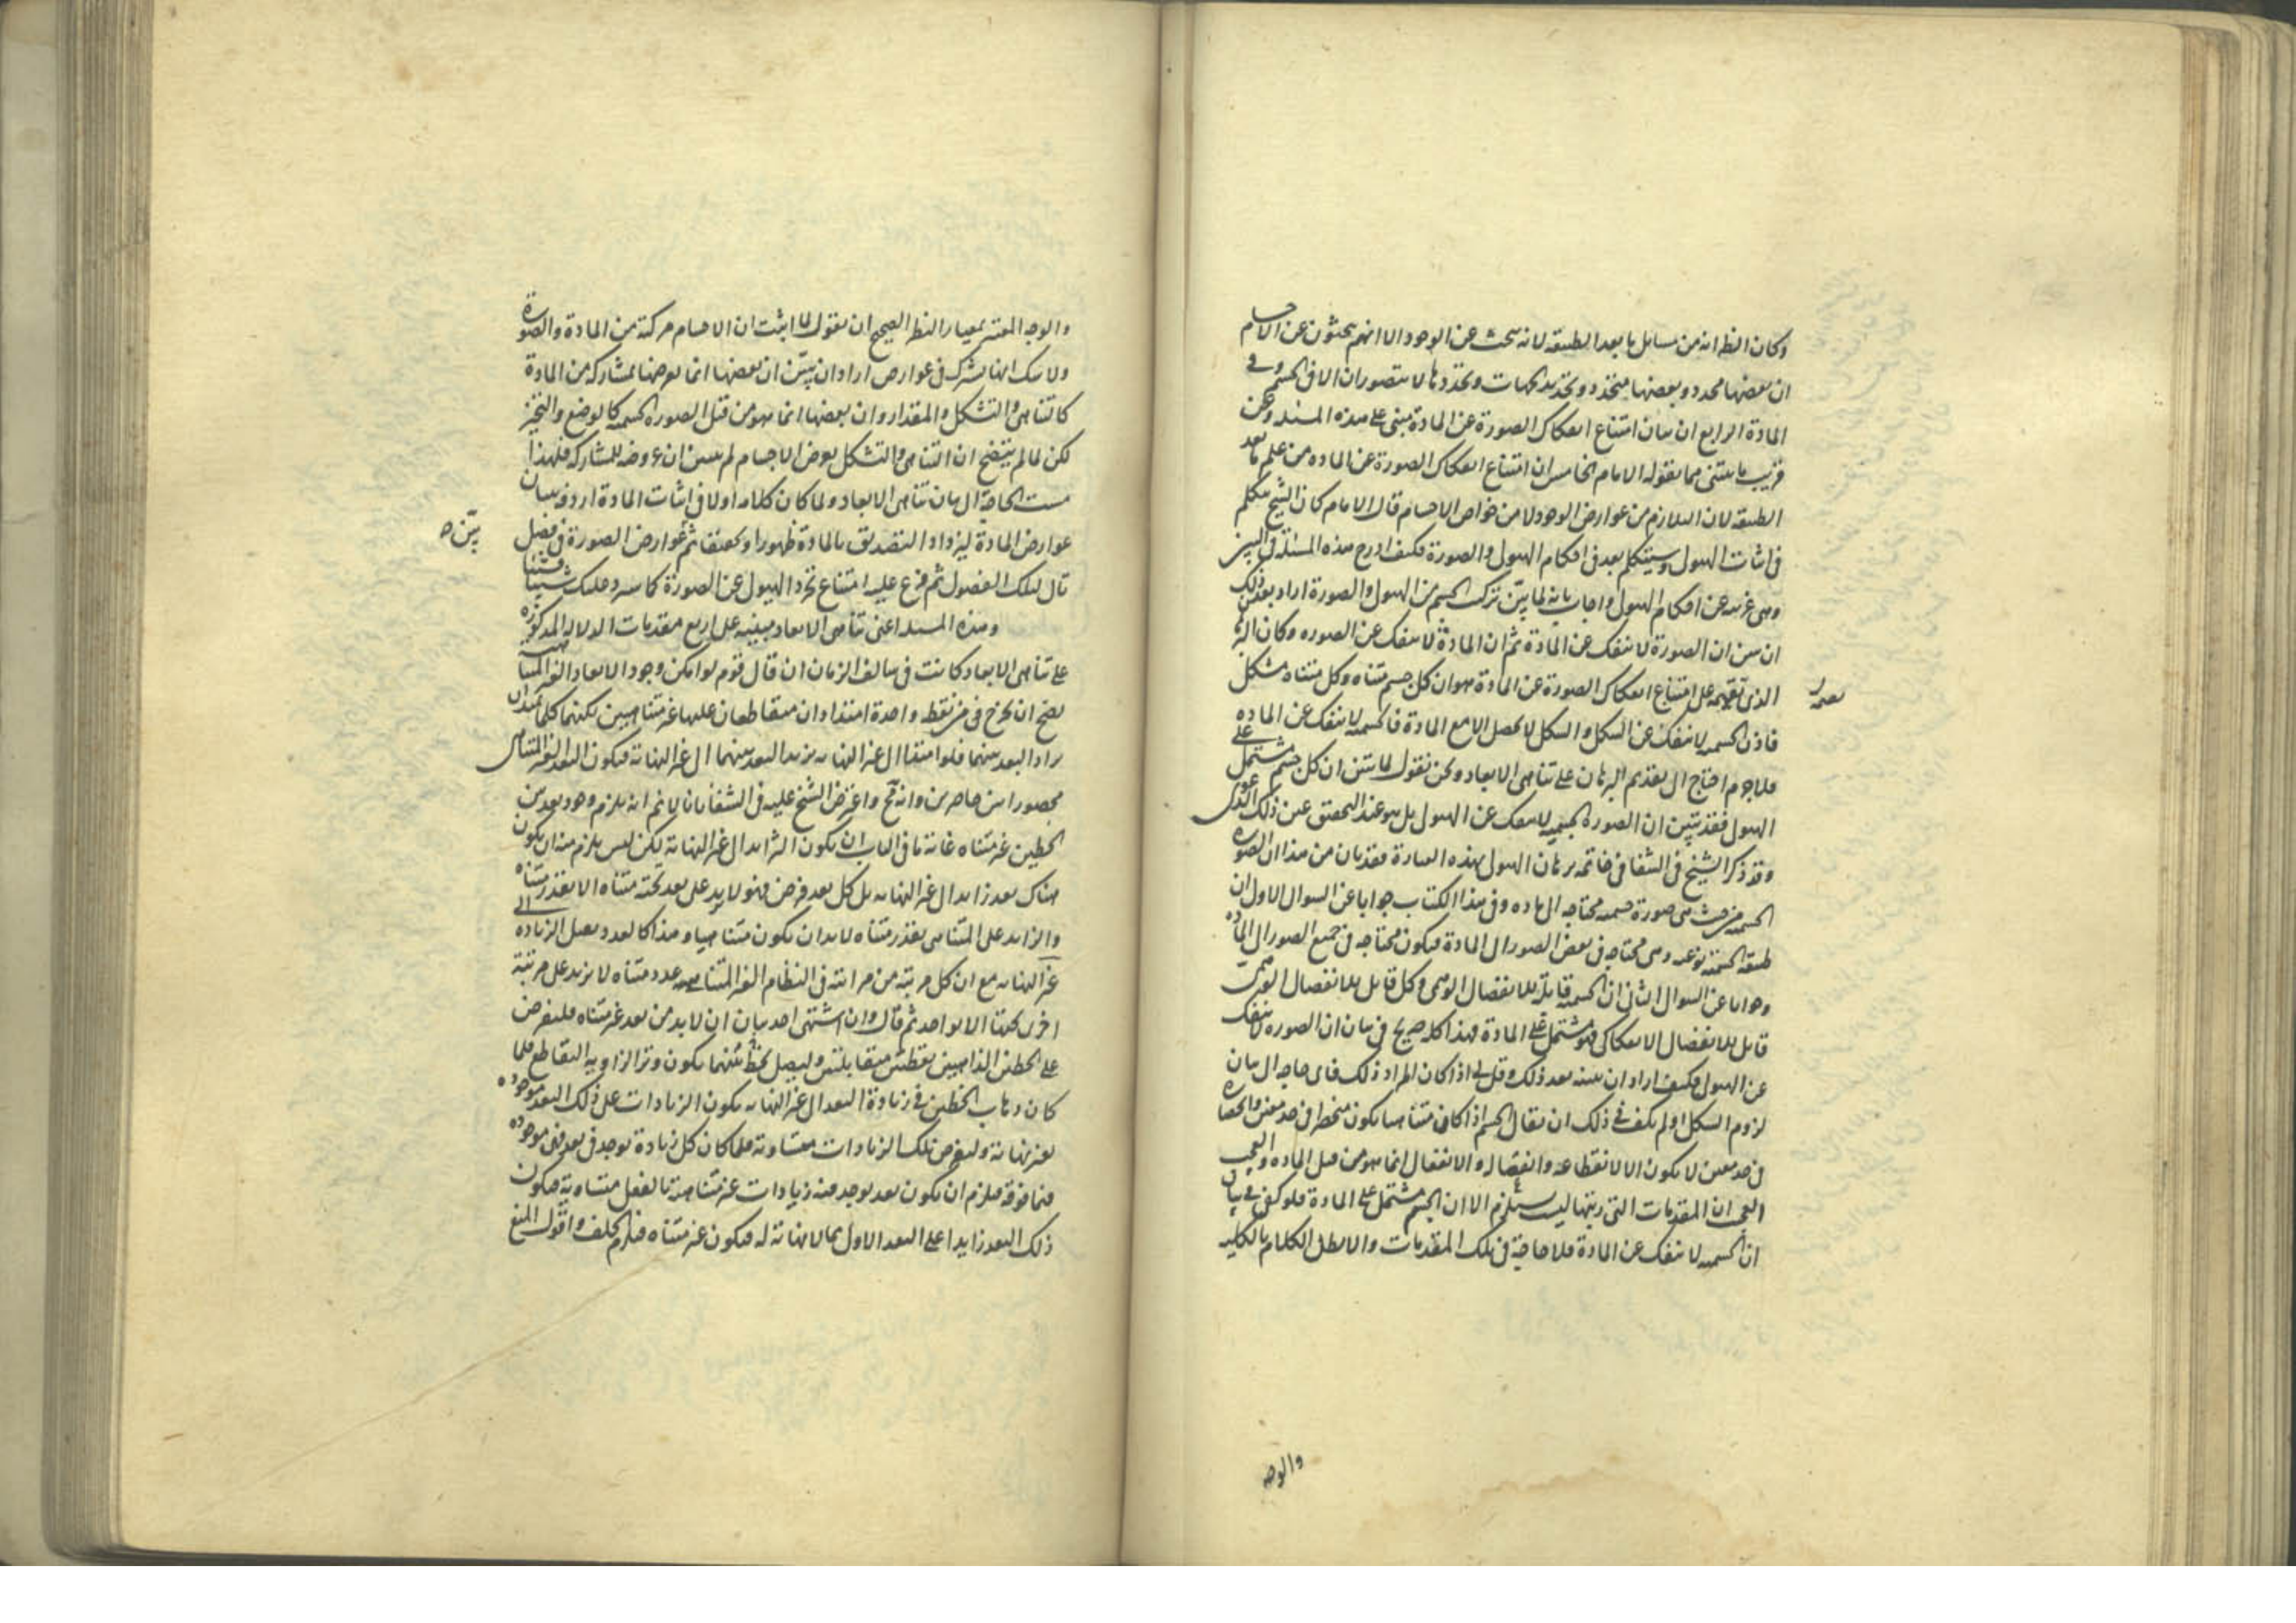 وكان النظر انه من مسائل ما بعد الطبيعة لانه يبحث عن الوجود الا انهم يبحثون عن الاجسام
ان بعضها محدد وبعضها متحدد وتحديد الجهات وتحددها لا يتصوران الا فى الجسم وفى
المادة الرابع ان بيان امتناع انفكاك الصورة عن المادة مبنى على هذه المسئلة وعن
قريب ما يبتنى مما يقوله الامام الخامس ان امتناع انفكاك الصورة عن المادة من علم ما بعد
الطبيعة لان اللازم من عوارض الوجود لا من خواص الاجسام قال الامام كان الشيخ تكلم
فى اثبات الهيولى وسيتكلم بعد فى احكام الهيولى والصورة فكيف ادرج هذه المسئلة فى البين
وهى غريبة عن احكام الهيولى واجاب بانه لما بين تركب الجسم من الهيولى والصورة اراد بعد ذلك
ان يبين ان الصورة لا تنفك عن المادة ثم ان المادة لا تنفك عن الصورة وكان البرهان
الذى يقيمه على امتناع انفكاك الصورة عن المادة هو ان كل جسم متناه وكل متناه مشكل
فاذن الجسمية لا تنفك عن الشكل والشكل لا يحصل الا مع المادة فالجسمية لا تنفك عن المادة
فلا جرم احتاج الى تقديم البرهان على تناهى الابعاد ونحن نقول لما تبين ان كل جسم مشتمل على
الهيولى فقد تبين ان الصورة الجسمية لا تنفك عن الهيولى بل هو عند التحقيق عين ذلك الدعوى
وقد ذكر الشيخ فى الشفا فى خاتمة برهان الهيولى بهذه العبارة فقد بان من هذا ان الصورة
الجسمية من حيث هى صورة جسمية محتاجة الى مادة وفى هذا الكتاب جوابا عن السوال الاول ان
طبيعة الجسمية نوعية وهى محتاجة فى بعض الصور الى المادة فيكون محتاجة فى جميع الصور الى المادة
وجوابا عن السوال الثانى ان الجسمية قابلة للانفصال الوهمى وكل قابل للانفصال الوهمى
قابل للانفصال الانفكاكى فهو مشتمل على المادة فهذا كله صريح فى بيان ان الصورة لا تنفك
عن الهيولى فكيف اراد ان يبينه بعد ذلك وقيل اذا كان المراد ذلك فاى حاجة الى بيان
لزوم الشكل اولم يكف فى ذلك ان يقال الجسم اذا كان متناهيا يكون منحصرا فى حد معين وانحصاره
فى حد معين لا يكون الا لانقطاعه وانفصاله والانفعال انما هو من قبل المادة والعجب
العجب ان المقدمات التى رتبها ليست يلزم الا ان الجسم مشتمل على المادة فلو كفى فى بيان
ان الجسمية لا تنفك عن المادة فلا حاجة فى تلك المقدمات والا بطل الكلام بالكلية
والوجه
والوجه المعتبر بمعيار النظر الصحيح ان يقول لما اثبت ان الاجسام مركبة من المادة والصورة
ولا شك انها تشترك فى عوارض اراد ان يبين ان بعضها انما يعرضها بمشاركة من المادة
كالتناهى والتشكل والمقدار وان بعضها انما هو من قبل الصورة الجسمية كالوضع والتحيز
لكن لما لم يتضح ان التناهى والتشكل يعرض الاجسام لم يتبين ان عروضه للمشاركة فلهذا
مست الحاجة الى بيان تناهى الابعاد ولما كان كلامه اولا فى اثبات المادة اردفه ببيان
عوارض المادة ليزداد التصديق بالمادة ظهورا وتحققا ثم عوارض الصورة فى فصل
بين
تال لتلك الفصول ثم فرع عليه امتناع تجرد الهيولى عن الصورة كما سيرد عليك شيئا فشيئا
وهذه المسئلة اعنى تناهى الابعاد مبنية على اربع مقدمات الدلالة المذكورة
على تناهى الابعاد كانت فى سالف الزمان ان قال قوم لو امكن وجود الابعاد الغير المتناهية
لصح ان يخرج من نقطة واحدة امتدادان متقاطعان عليها غير متناهيين لكنهما كلما امتدا
زاد البعد بينهما فلو امتدا الى غير النهاية يزيد البعد بينهما الى غير النهاية فيكون البعد الغير المتناهى
محصورا بين حاصرين وانه مح واعترض الشيخ عليه فى الشفا بان لا نم انه يلزم وجود بعد بين
الخطين غير متناه غاية ما فى الباب ان يكون التزايد الى غير النهاية لكن ليس يلزم منه ان يكون
هناك بعد زايد الى غير النهاية بل كل بعد فرض فهو لا يزيد على بعد تحته متناه الا بقدر متناه
والزايد على المتناهى بقدر متناه لا بد ان يكون متناهيا وهذا كالعدد يقبل الزيادة الى
غير النهاية مع ان كل مرتبة من مراتبه فى النظام الغير المتناهى عدد متناه لا يزيد على مرتبة
اخرى تحتها الا بواحد ثم قال وان اشتهى احد بيان ان لا بد من بعد غير متناه فليفرض
على الخطين الذاهبين نقطتين متقابلتين وليصل بخط بينهما يكون وترا لزاوية التقاطع فلما
كان ذهاب الخطين فى زيادة البعد الى غير النهاية يكون الزيادات على ذلك البعد موجودة
بغير نهاية ولنفرض تلك الزيادات متساوية فلما كان كل زيادة يوجد فى بعد فهى موجودة
فيما فوقه فيلزم ان يكون بعد يوجد فيه زيادات غير متناهية بالفعل متساوية فيكون
ذلك البعد زايدا على البعد الاول بما لا نهاية له فيكون غير متناه فيلزم الخلف واقول المنع